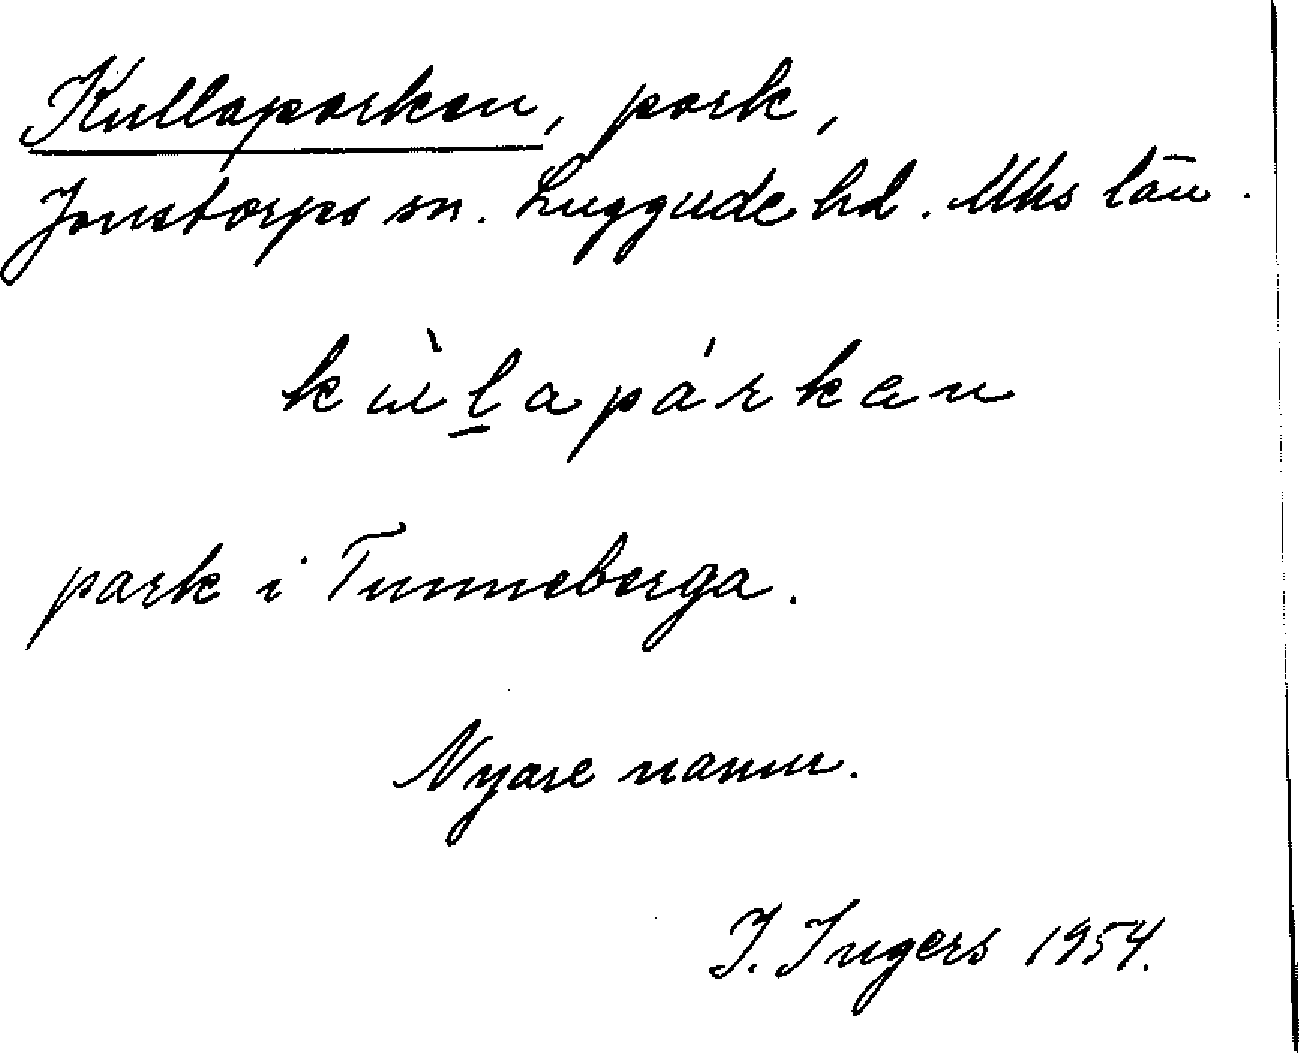 Kullaparken, park,
Jonstorps sn. Luggude hd. Mhs län.
kùl̠apárkan
park i Tunneberga.
Nyare namn.
I. Ingers 1954.